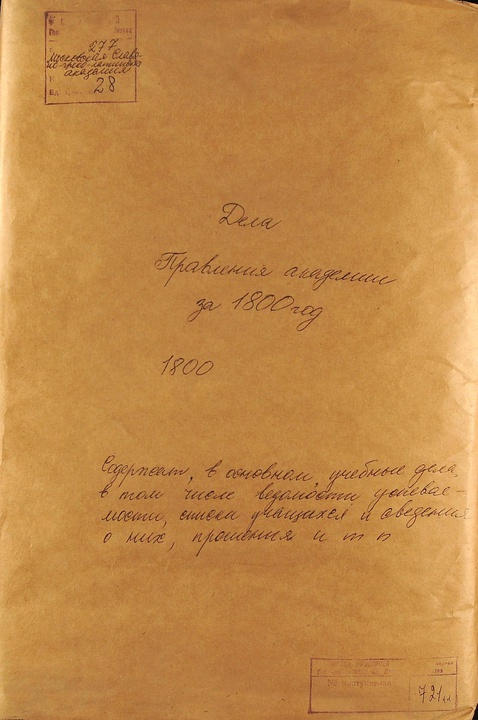 277
Московская Славя-
но-греко-латинская
академия
28
Дела
Правления академии
за 1800 год
1800
Содержат, в основном, учебные дела,
в том числе ведомости успевае-
мости, списки учащихся и сведения
о них, прошения и т п